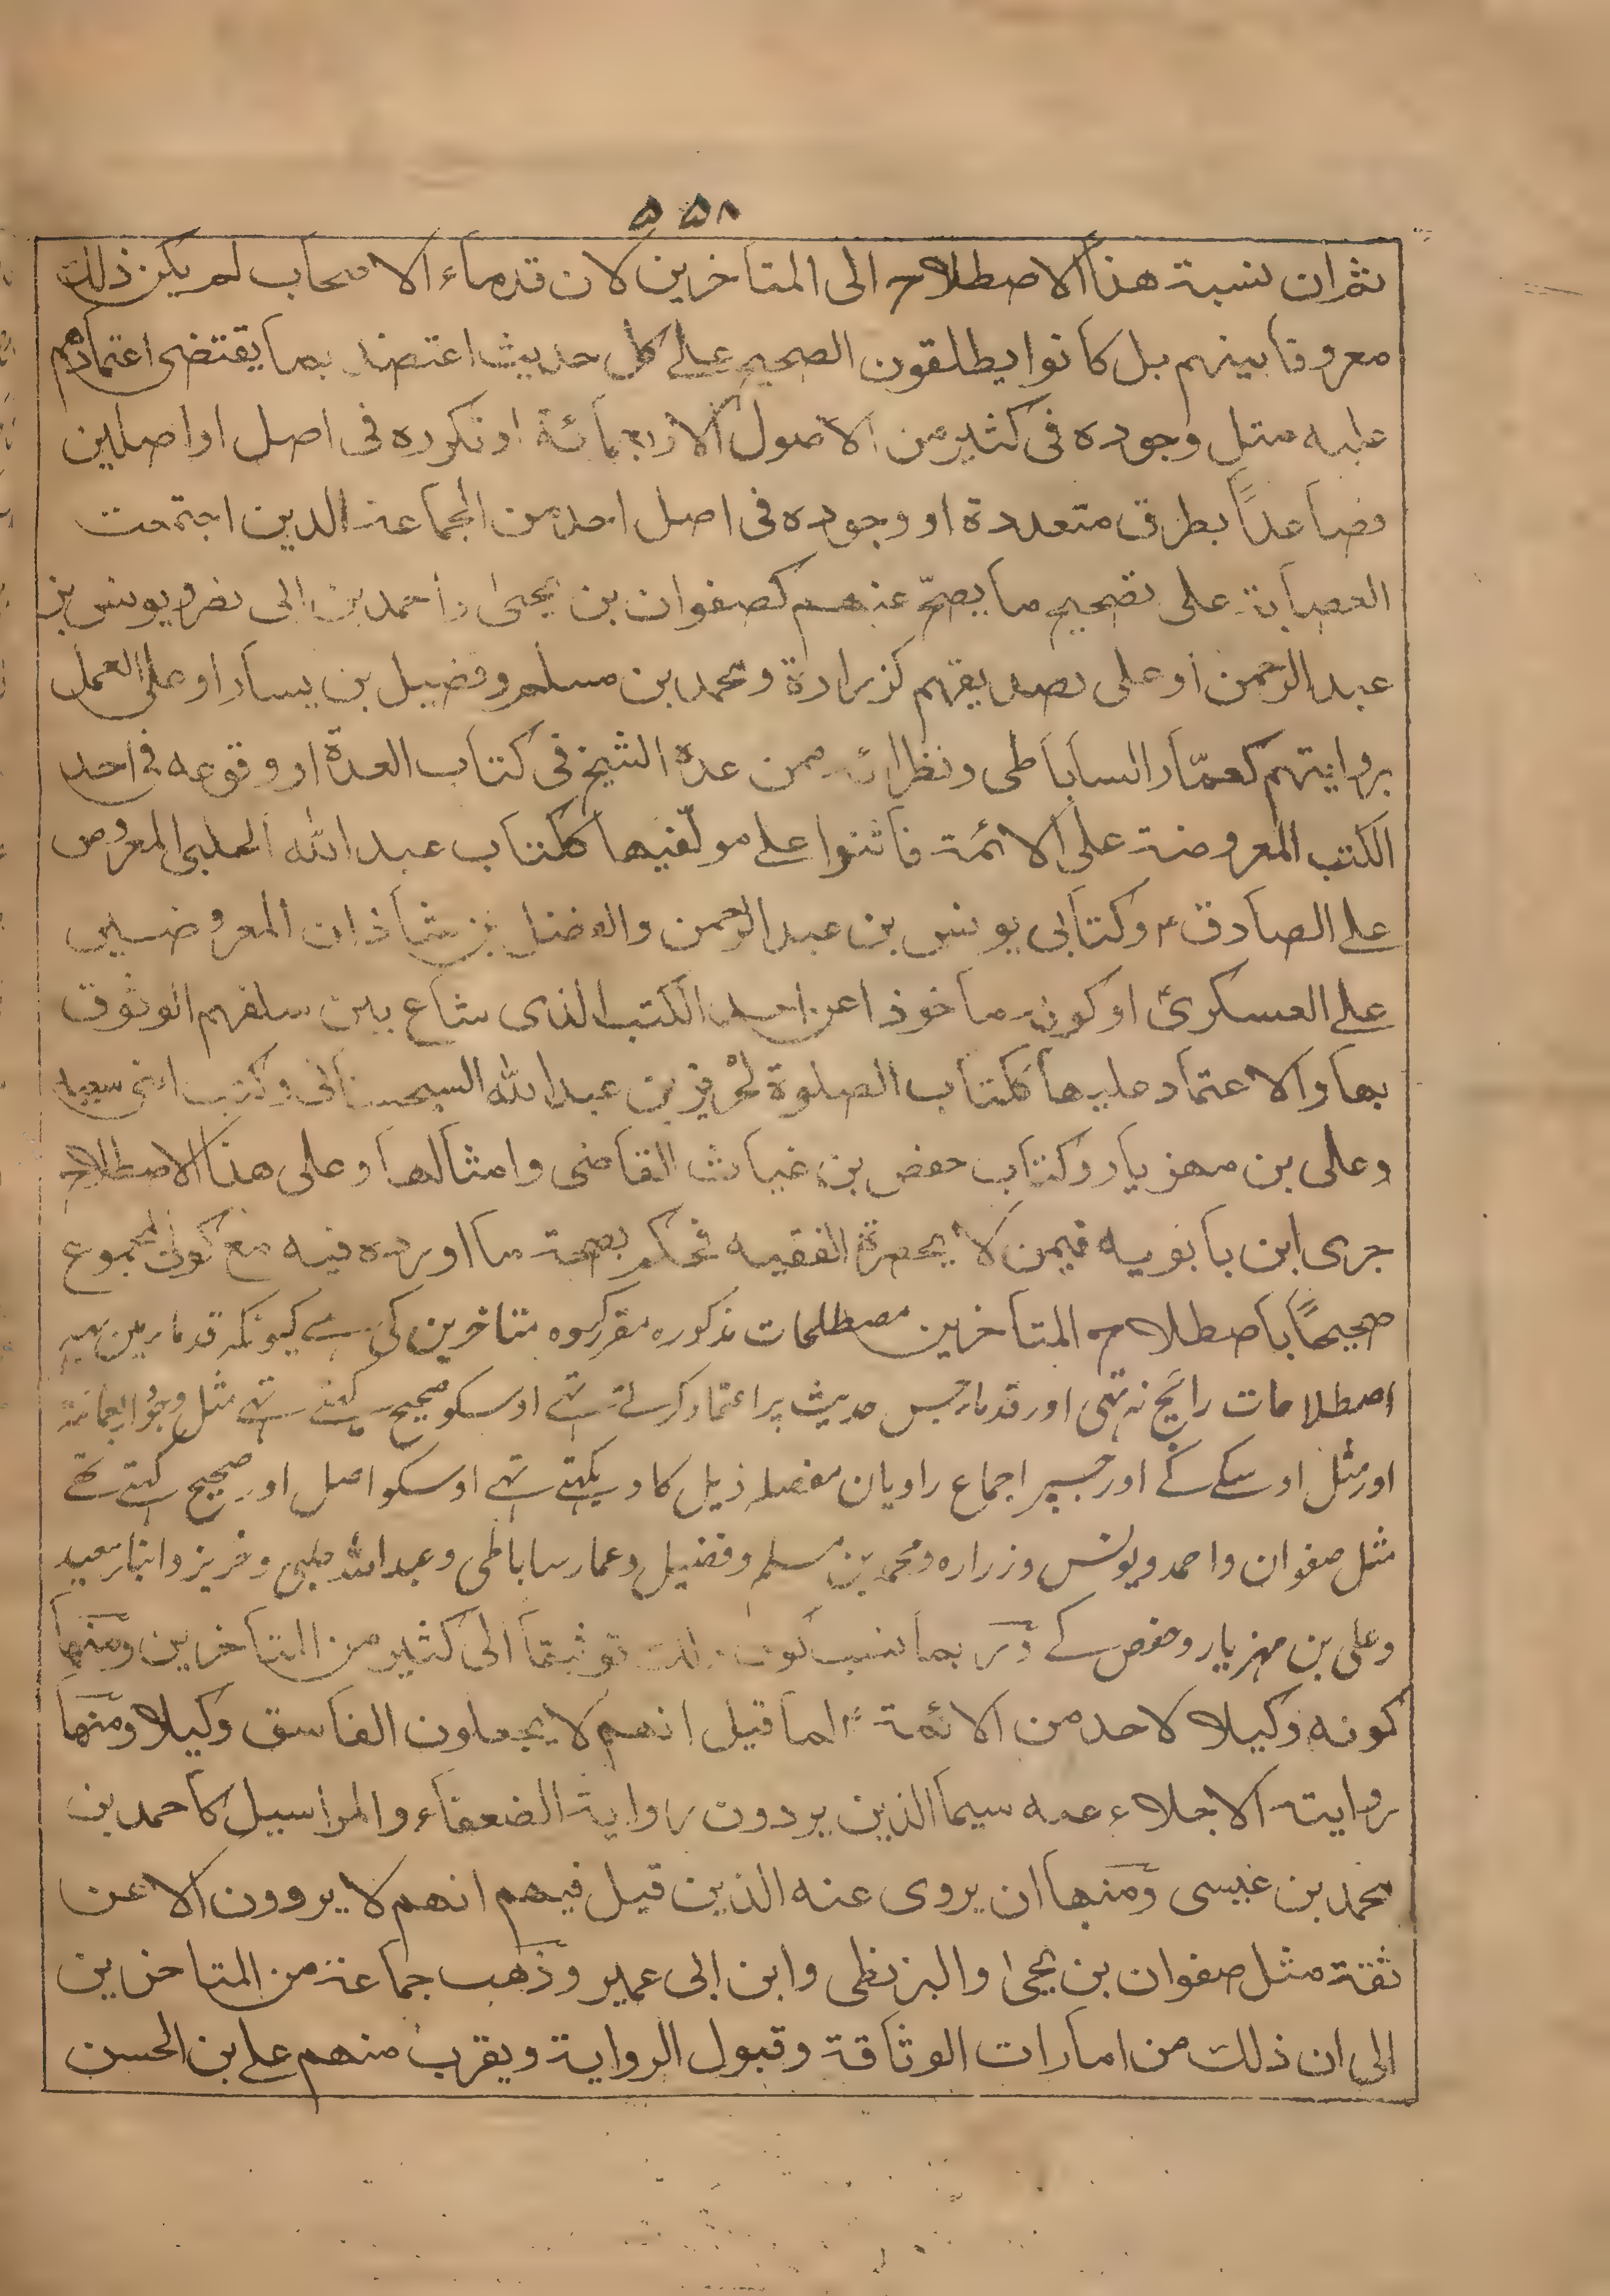 ۵۵۸
ثم ان نسبة هذا الاصطلاح الى المتأخرين لان قدماء الاصحاب لم يكن ذلك
معروفا بينهم بل كانوا يطلقون الصحيح على كل حديث اعتضد بما يقتضى اعتمادهم
عليه مثل وجوده فى كثير من الاصول الاربعمائة او تكرره فى اصل او اصلين
فصاعداً بطرق متعددة او وجوده فى اصل احد من الجماعة الذين اجتمعت
العصابة على تصحيح ما يصحّ عنهم كصفوان بن يحيىٰ و احمد بن ابى نصر و يونس بن
عبد الرحمن او على تصديقهم كزرارة و محمد بن مسلم و فضيل بن يسار او على العمل
بروايتهم كعمّار الساباطى ونظرائه ممن عدة الشيخ فى كتاب العدة او وقوعه فى احد
الكتب المعروضة على الائمة فاثنوا على مولّفيها ككتاب عبد الله الحلبى المعروض
على الصادق ؑ وكتابى يونس بن عبد الرحمن والفضل بن شاذان المعروضين
على العسكرىؑ او كونه ماخوذا عن احد الكتب الذى شاع بين سلفهم الوثوق
بها والاعتماد عليها ككتاب الصلوة لحريز بن عبد الله السجستانى و كتب ابنى سعيد
وعلى بن مهزيار وكتاب حفص بن غياث القاضى وامثالها وعلى هذا الاصطلاح
جرى ابن بابويه فيمن لا يحضرة الفقيه فحكم بصحة ما اورده فيه مع كون المجموع
صحيحاً باصطلاح المتاخرين مصطلحات مذکورہ مقرر کردہ متاخرین کی ہے کیونکہ قدما میں یہہ
اصطلاحات رائج نہ تہی اور قدما جس حدیث پر اعتماد کرتے تہے اوسکو صحیح کہتے تہے مثل وجود اربعمائة
اور مثل اوسکے کے اور جسپر اجماع راویان مفصلہ ذیل کا دیکہتے تہے اوسکو اصل اور صحیح کہتے تھے
مثل صفوان و احمد و یونس و زرارہ و محمد بن مسلم و فضیل و عمار ساباطی و عبد اللہ حلبی و حریز و ابنا سعید
و علی بن مہزیار و حفص کے بما نسب كون ذلك توثيقاً الى كثير من المتاخرين ومنها
كونه وكيلا لاحد من الائمة ؑ لما قيل انهم لا يجعلون الفاسق وكيلا ومنها
روايت الاجلاء عنه سيما الذين يردون رواية الضعفاء والمراسيل كاحمد بن
محمد بن عيسى ومنها ان يروى عنه الذين قيل فيهم انهم لا يروون الا عن
ثقة مثل صفوان بن يحيىٰ والبزنطى وابن ابى عمير وذهب جماعة من المتاخرين
الى ان ذلك من امارات الوثاقة وقبول الرواية ويقرب منهم على بن الحسن